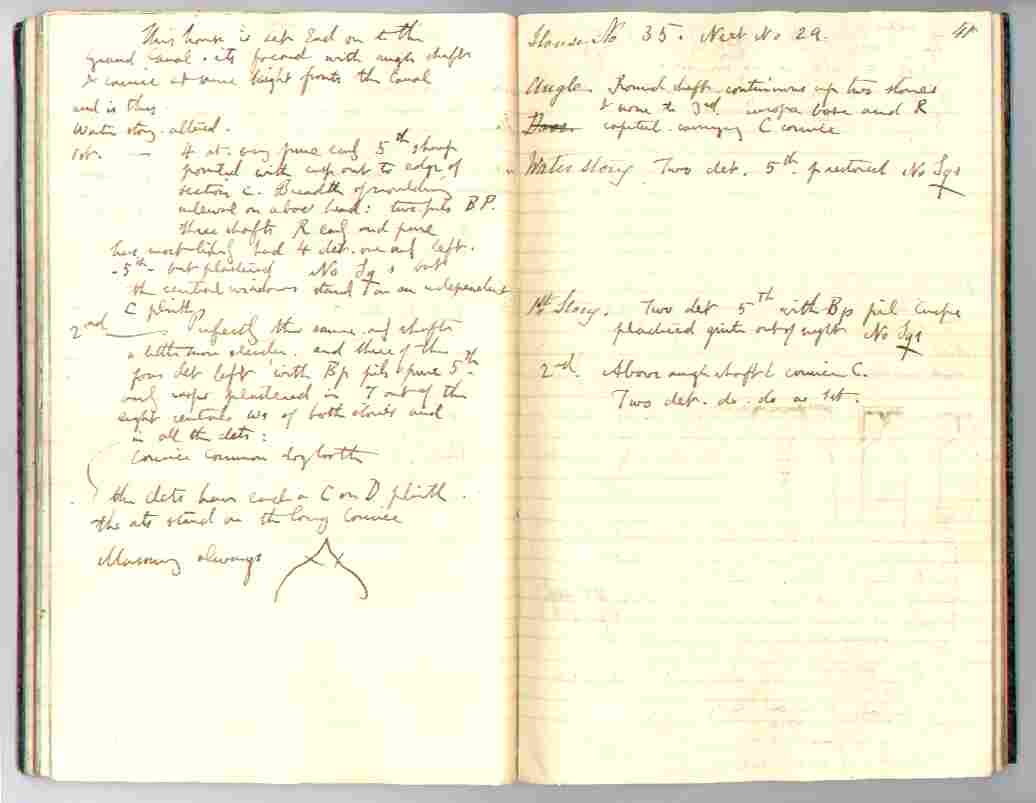 This house is set End on to the
Grand Canal. its ground with angle shafts
& cornice at same height fronts the Canal
and is thus
Water story. altered.
1st. — 4 at. very pure early 5th sharp
pointed with cusp out to edge of
section C. Breadth of moulding
inlaid on above head: two pils BP.
three shafts R early and pure
has most likely had 4 det. one only left.
- 5th - but plastered No Sqs but
the central windows stand on an independent
C plinth
2nd — perfectly the same only shafts
a little more slender. and three of the
four det left with Bp pils pure 5th.
only cusps plastered in 7 out of the
eight central ws of both stories and
in all the dets:
Cornice Common dogtooth
the dets have each a C on D plinth.
the ats stand on the long Cornice
Masonry always
House No 35. Next No 29. 41
Angle. Round shaft continuous up two stories
& none to 3rd. base and R
Base. capital. carrying C cornice
Water Story Two det. 5th. plastered No Sqs
1st Story. Two det 5th with Bp pil Cusps
plastered quite out of sight No Sqs
2nd. Above angle shaft & cornice C.
Two det. do. do as 1st.